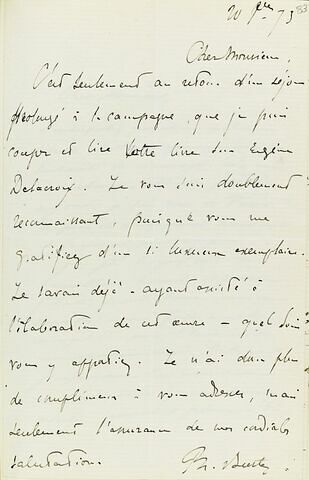 20 9bre 73 33
Cher Monsieur,
C'est seulement au retour d'un séjour
prolongé à la campagne, que je puis
couper et lire votre livre sur Eugène
Delacroix. Je vous suis doublement
reconnaissant, puisque vous me
gratifiez d'un si luxueux exemplaire.
Je savais déjà - ayant assisté à
l'élaboration de cet œuvre - quel soin
vous y apportiez. Je n'ai donc plus
de compliments à vous adresser, mais
seulement l'assurance de mes cordiales
salutations.
Ph. Burty